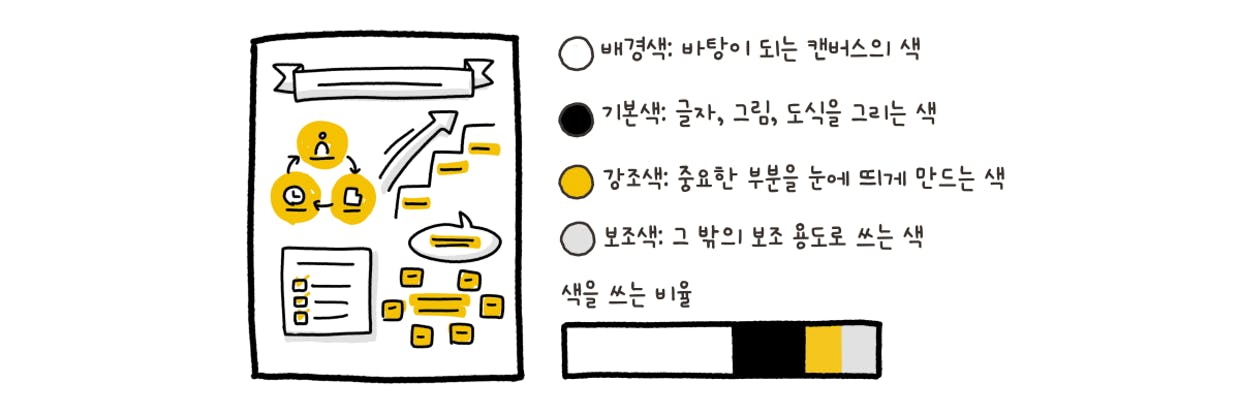 배경색: 바탕이 되는 캔버스의 색
기본색: 글자, 그림, 도식을 그리는 색
강조색: 중요한 부분을 눈에 띄게 만드는 색
보조색: 그 밖의 보조 용도로 쓰는 색
색을 쓰는 비율